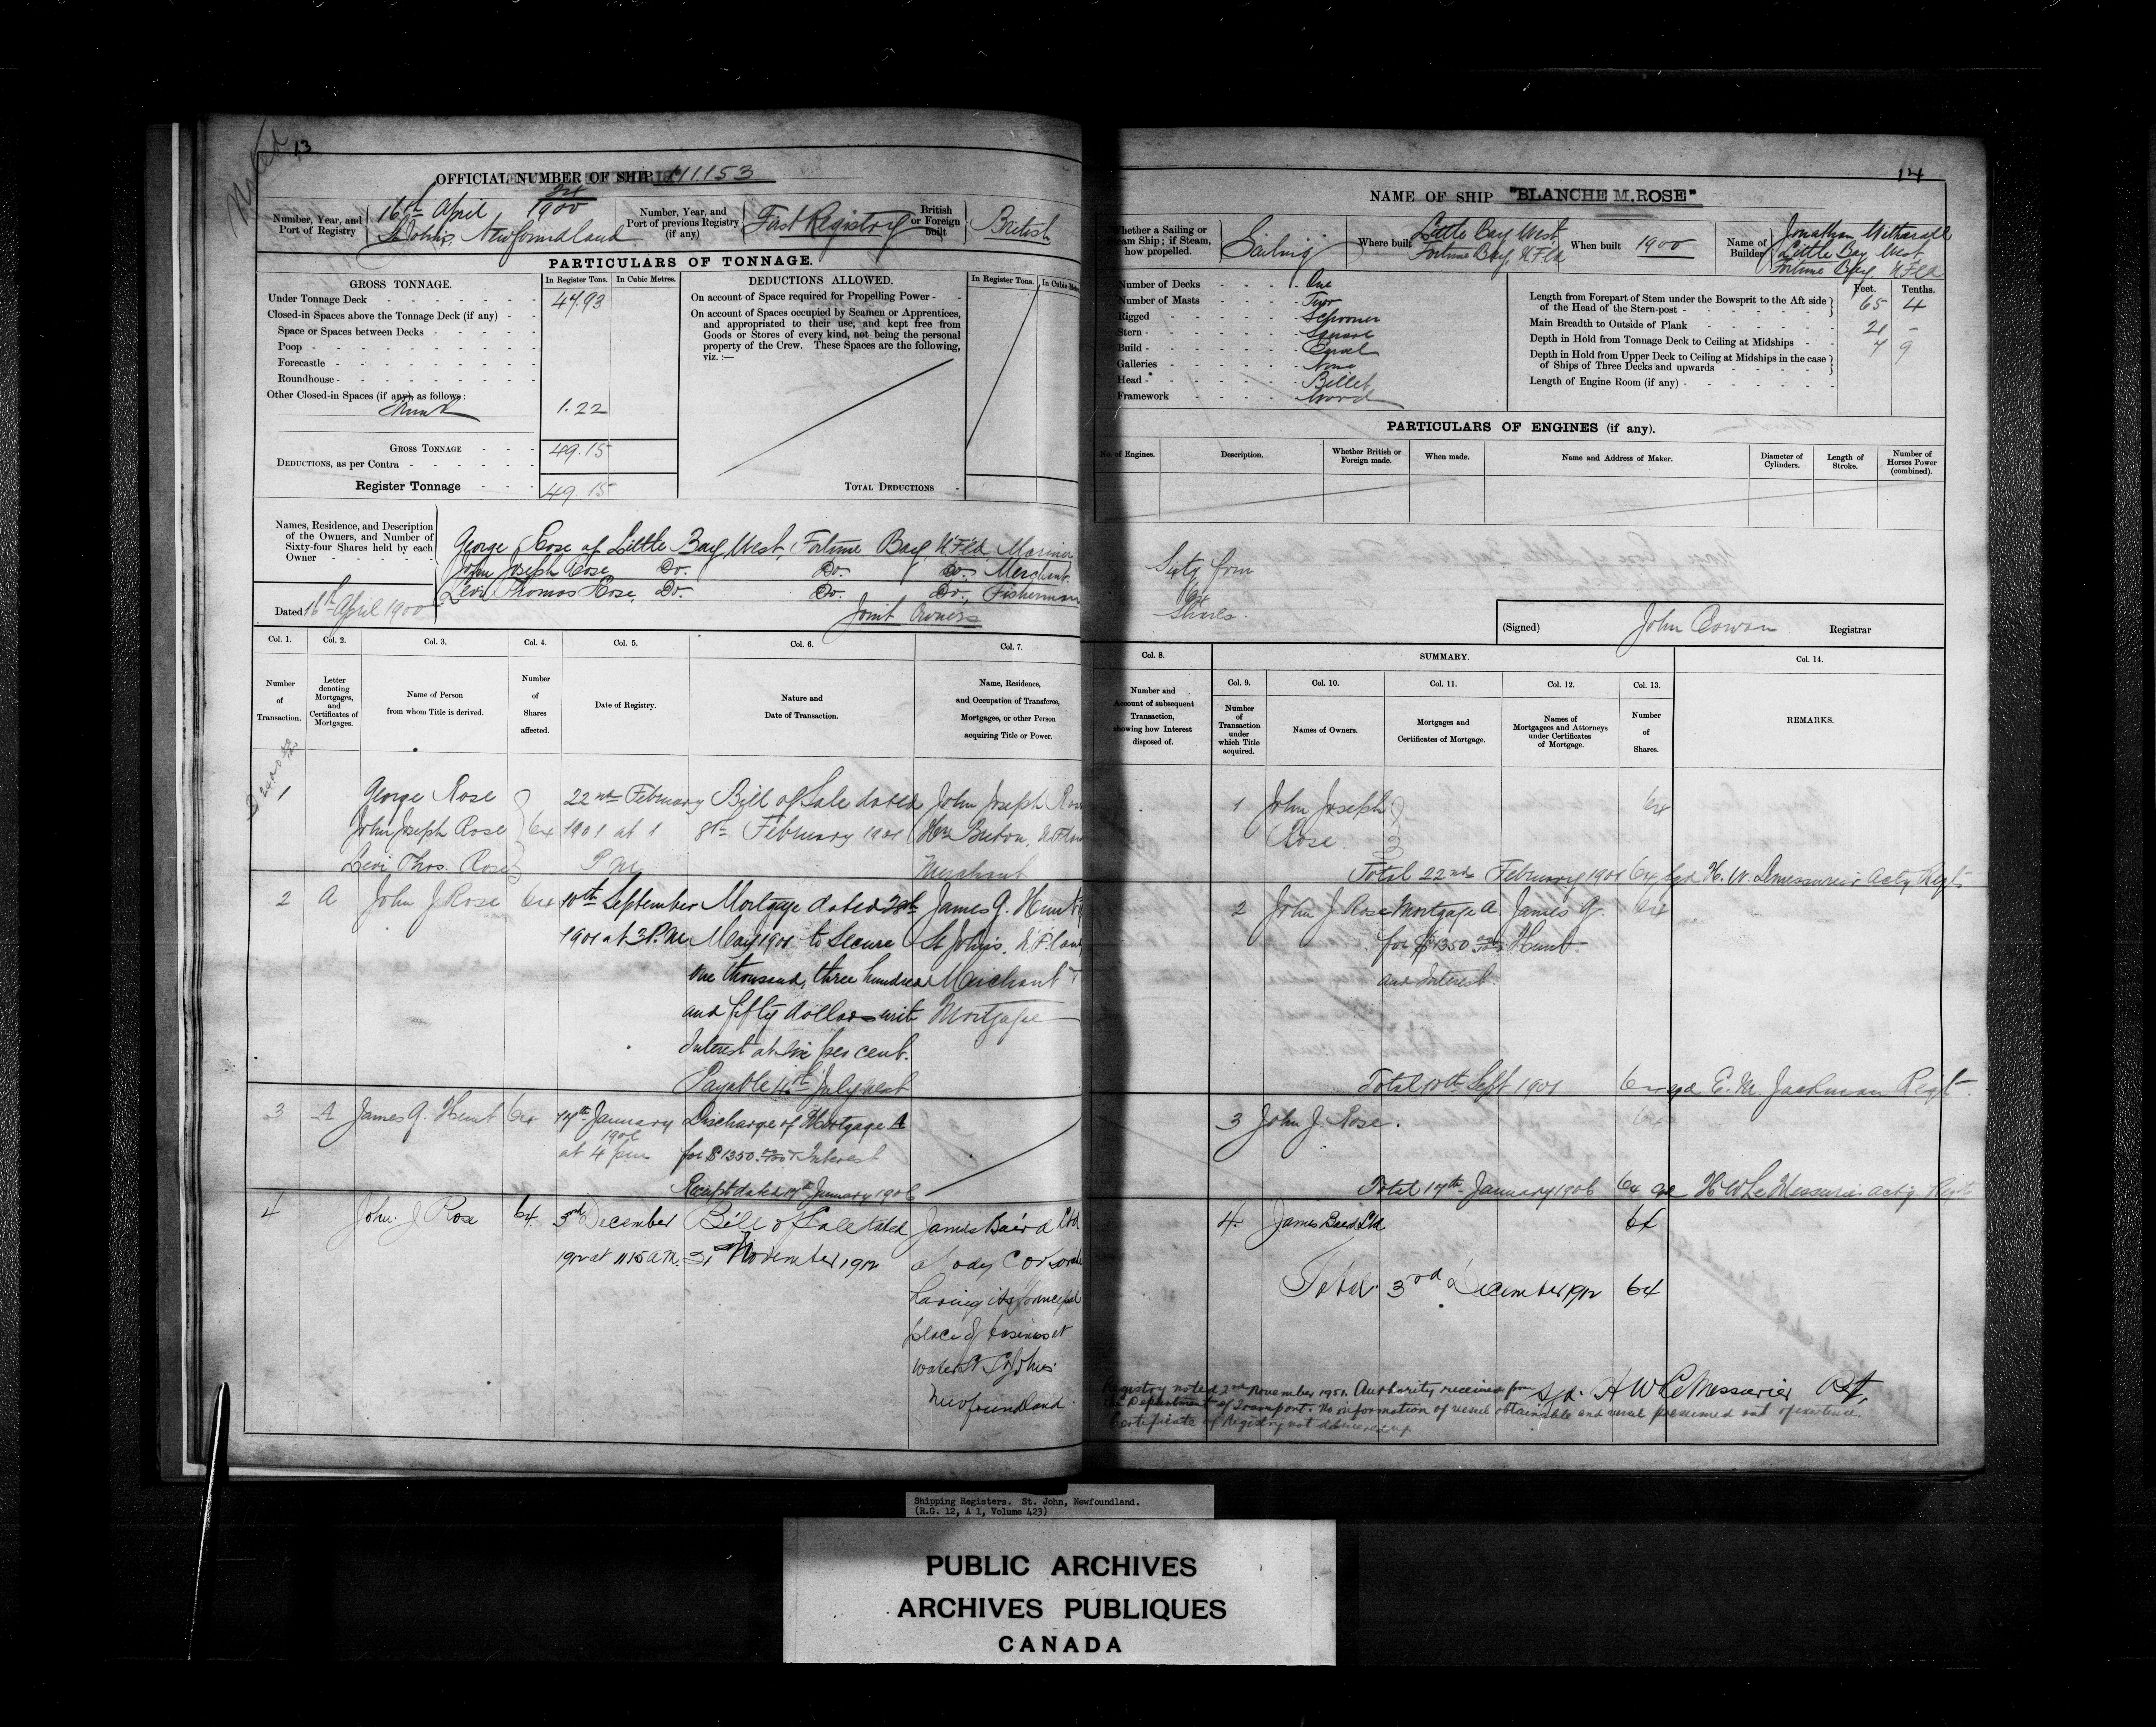 Noted
13
OFFICIAL NUMBER OF SHIP 111.153
Number, Year, and Port of Registry
16th April 24/1900
St Johns, Newfoundland
Number, Year, and Port of previous Registry (if any)
First Registry
British or Foreign built
British
PARTICULARS OF TONNAGE.
GROSS TONNAGE.
In Register Tons. In Cubic Metres.
Under Tonnage Deck 47.93
Closed-in Spaces above the Tonnage Deck (if any)
Space or Spaces between Decks
Poop
Forecastle
Roundhouse
Other Closed-in Spaces (if any), as follows:
Trunk 1.22
GROSS TONNAGE 49.15
DEDUCTIONS, as per Contra
Register Tonnage 49.15
DEDUCTIONS ALLOWED.
In Register Tons. In Cubic
On account of Space required for Propelling Power
On account of Spaces occupied by Seamen or Apprentices,
and appropriated to their use, and kept free from
Goods or Stores of every kind, not being the personal
property of the Crew. These Spaces are the following,
viz. :—
TOTAL DEDUCTIONS
Names, Residence, and Description
of the Owners, and Number of
Sixty-four Shares held by each
Owner
George Rose of Little Bay West, Fortune Bay NFld Mariner
John Joseph Rose Do. Do. Do. Merchant.
Levi Thomas Rose, Do. Do. Do., Fisherman
Joint Owners
Dated 16th April 1900
Col. 1. Col. 2. Col. 3. Col. 4. Col. 5. Col. 6. Col. 7.
Number of Transaction.
Letter denoting Mortgages, and Certificates of Mortgages.
Name of Person from whom Title is derived.
Number of Shares affected.
Date of Registry.
Nature and Date of Transaction.
Name, Residence, and Occupation of Transferee, Mortgagee, or other Person acquiring Title or Power.
1 George Rose 22nd February Bill of Sale dated John Joseph Rose
John Joseph Rose 64 1901 at 1 8th February 1901 Hr Breton,
Levi Thos. Rose P M Merchant
2 A John J Rose 64 10th September Mortgage dated James G. Hunt
1901 at 3 P.M. May 1901 to Secure St Johns,
one thousand, three hundred Merchant
and fifty dollars with Mortgage
Interest at six per cent.
Payable July next
3 A James G. Hunt 64 17th January Discharge of Mortgage A
1906
at 4 pm for $1350.00/100 & Interest
Receipt dated 17th January 1906
4 John J Rose 64 3rd December Bill of Sale dated James Baird Ltd
1912 at 11 15 a.m. November 1912 a body Corporate
having its principal
place of business at
Water St St Johns
Newfoundland.
14
NAME OF SHIP "BLANCHE M. ROSE"
Whether a Sailing or Steam Ship; if Steam, how propelled.
Sailing
Where built
Little Bay West,
Fortune Bay, NFld
When built 1900
Name of Builder
Jonathan
Little Bay West,
Fortune Bay, NFld
Number of Decks One
Number of Masts Two
Rigged Schooner
Stern Square
Build Carvel
Galleries None
Head Billet
Framework Wood
Feet. Tenths.
Length from Forepart of Stem under the Bowsprit to the Aft side
of the Head of the Stern-post 65 4
Main Breadth to Outside of Plank 21 -
Depth in Hold from Tonnage Deck to Ceiling at Midships 7 9
Depth in Hold from Upper Deck to Ceiling at Midships in the case
of Ships of Three Decks and upwards
Length of Engine Room (if any)
PARTICULARS OF ENGINES (if any).
No. of Engines.
Description.
Whether British or Foreign made.
When made.
Name and Address of Maker.
Diameter of Cylinders.
Length of Stroke.
Number of Horses Power (combined).
Sixty four
64
Shares.
(Signed) John Cowan Registrar
Col. 8.
SUMMARY.
Col. 14.
Col. 9. Col. 10. Col. 11. Col. 12. Col. 13.
Number and Account of subsequent Transaction, showing how Interest disposed of.
Number of Transaction under which Title acquired.
Names of Owners.
Mortgages and Certificates of Mortgage.
Names of Mortgagees and Attorneys under Certificates of Mortgage.
Number of Shares.
REMARKS.
1 John Joseph 64
Rose
Total 22nd February 1901 64 Sgd H. W. LeMessurier Actg Regt.
2 John J. Rose Mortgage A. James G. 64
for $1350.00/100 Hunt
and Interest
Total 10th Sept 1901 64 sgd E. M. Jackman Regt.
3 John J. Rose. 64
Total 17th January 1906 64 sgd H W LeMessurier actg Regt
4. James Baird Ltd 64
Total 3rd December 1912 64
Sgd. H W LeMessurier Rgt,
Registry noted 2nd November 1951. Authority received from
the Department of Transport. No information of vessel obtainable and vessel presumed out of existence.
Certificate of Registry not delivered up.
Shipping Registers. St. John, Newfoundland.
(R.G. 12, A 1, Volume 423)
PUBLIC ARCHIVES
ARCHIVES PUBLIQUES
CANADA